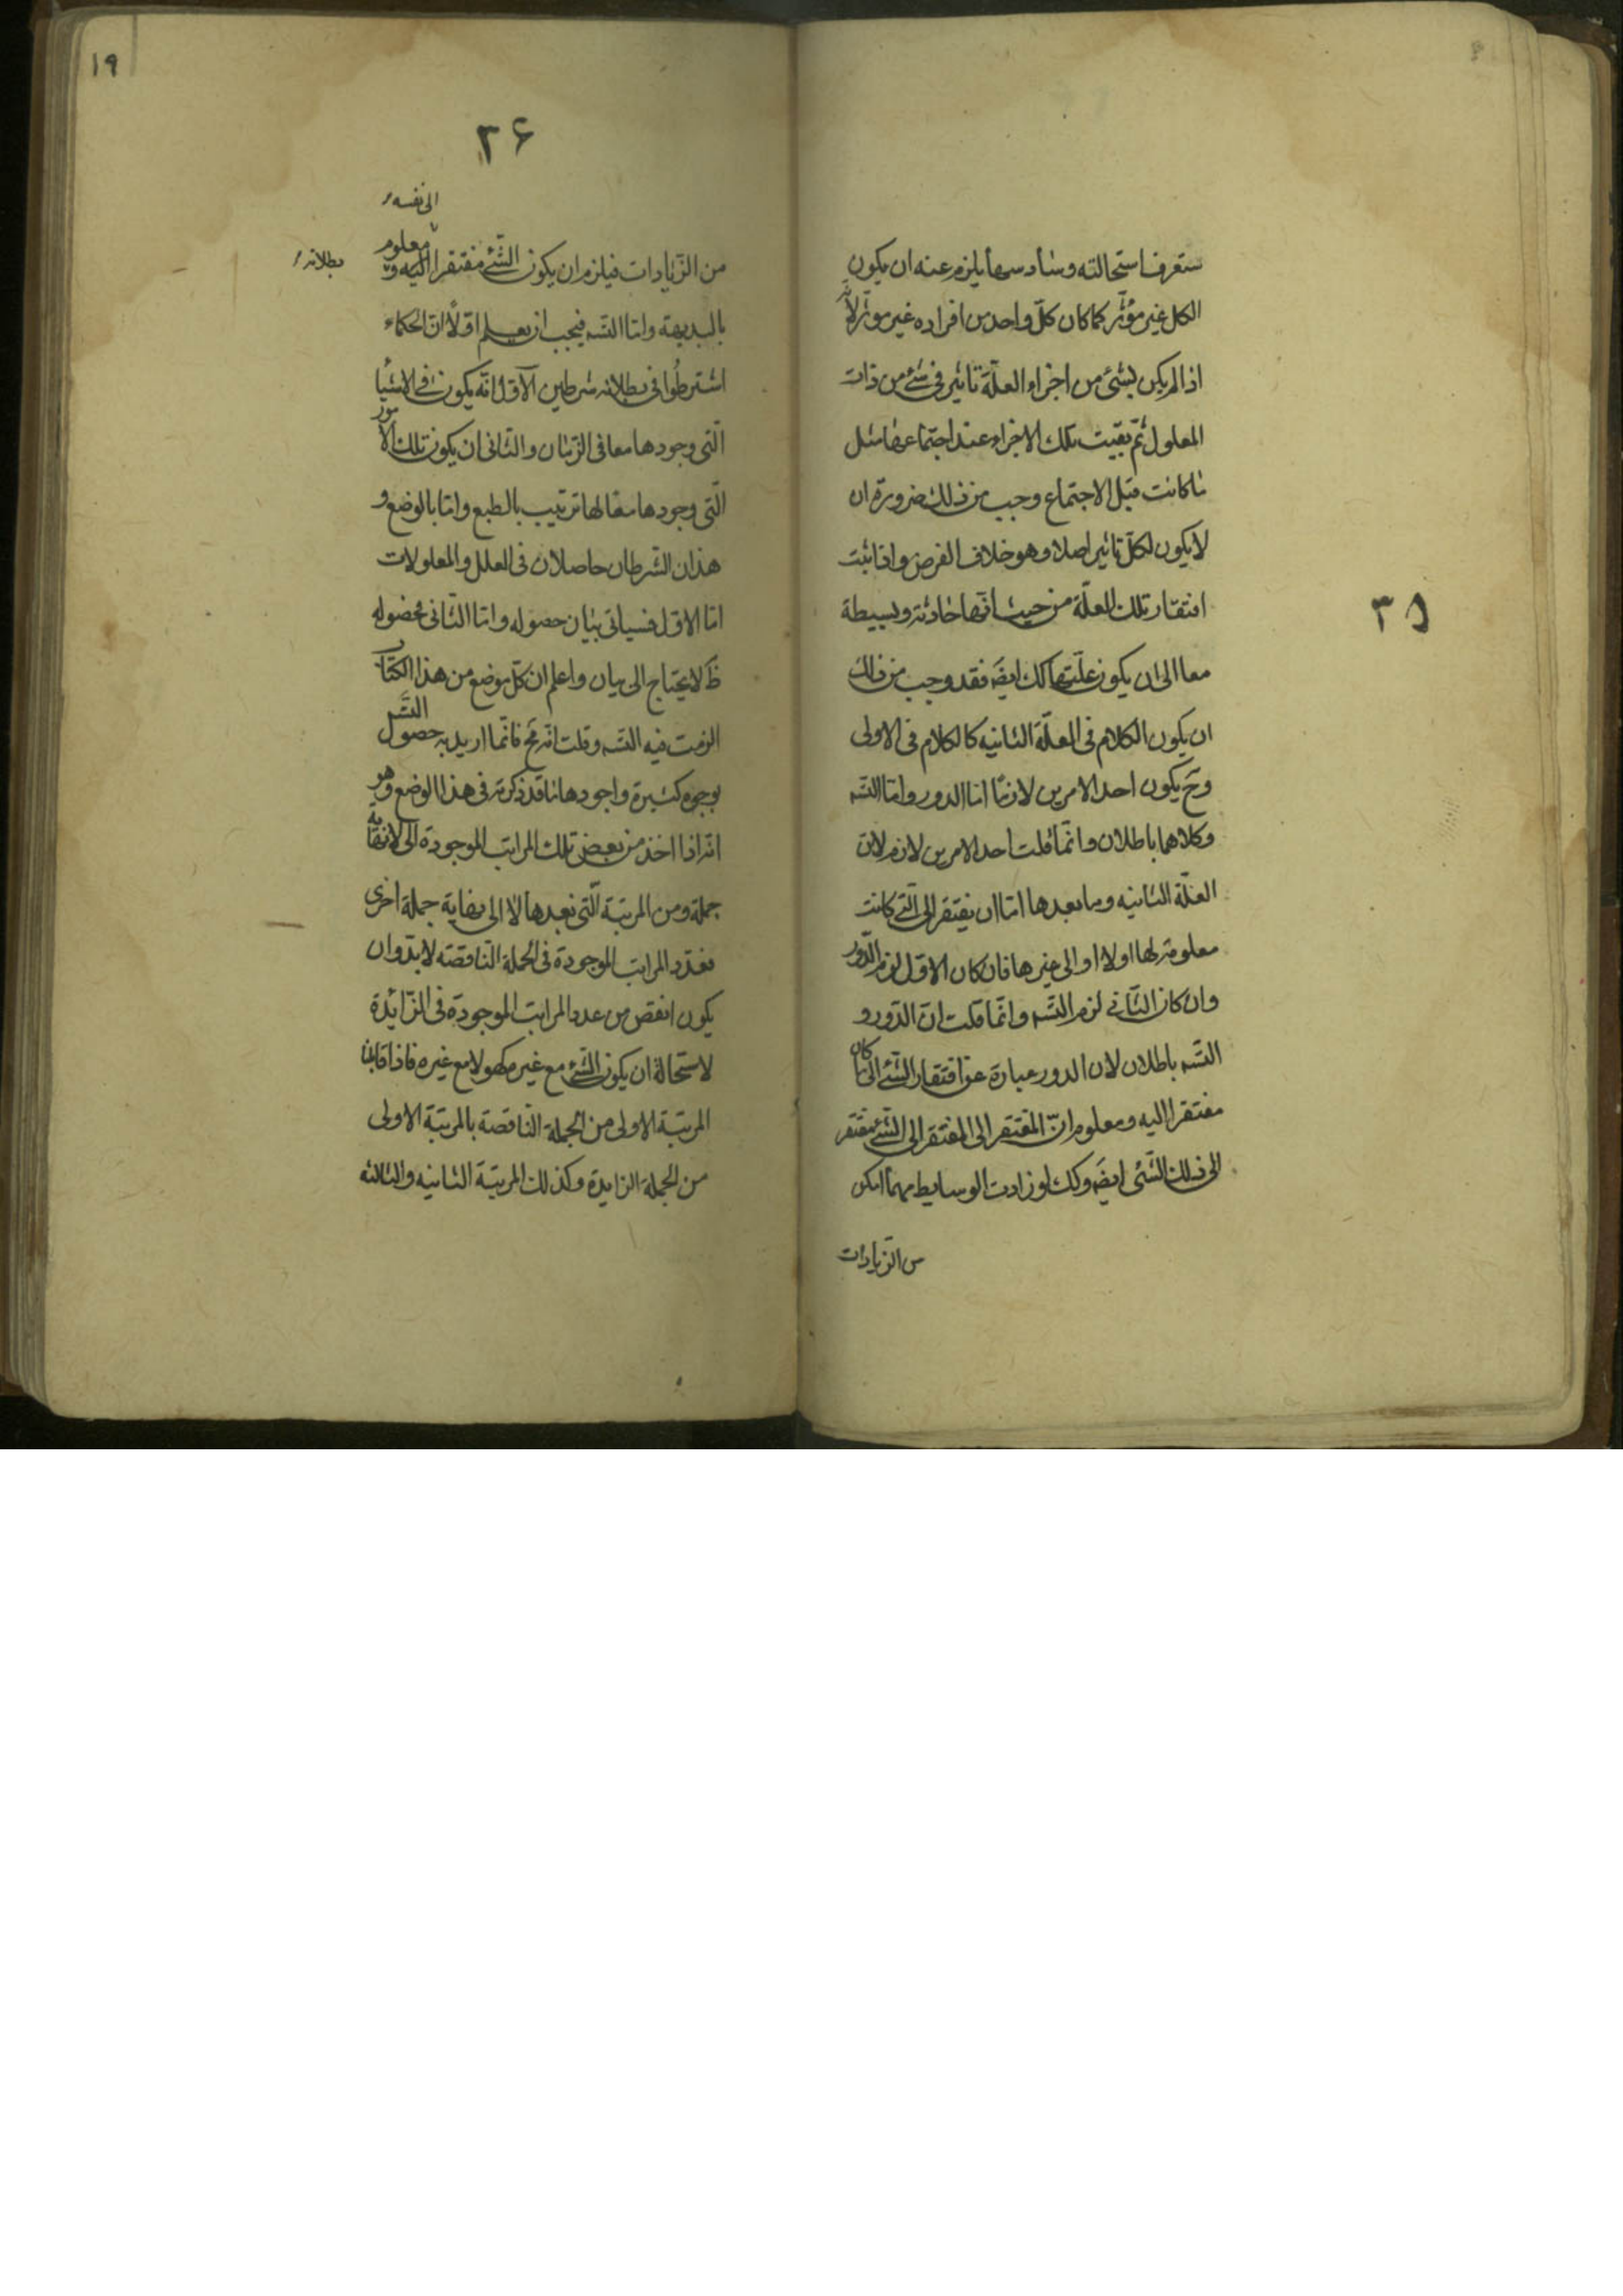 ستعرف استحالته وسادسها يلزم عنه ان يكون
الكل غير مؤثر كما كان كلّ واحد من افراده غير موثر لانّه
اذا لم يكن لشئ من اجزاء العلّة تاثير فى شئ من ذات
المعلول ثمّ بقيت تلك الاجزاء عند اجتماعها مثل
ما كانت قبل الاجتماع وجب من ذلك ضرورة ان
لا يكون لكلّ تاثير اصلا وهو خلاف الفرض واذا ثبت
افتقار تلك العلّة من حيث انّها حادثة وبسيطة
٣٥
معا الى ان يكون علّتها كك ايضَ فقد وجب من ذلك
ان يكون الكلام فى العلّة الثانيه كالكلام فى الاولى
وحَ يكون احد الامرين لازما اما الدور واما التسَـ
وكلاهما باطلان وانّما قلت احد الامرين لازم لان
العلّة الثانيه وما بعدها امّا ان يفتقر الى الّتى كانت
معلومة لها اولا او الى غيرها فان كان الاوّل لزم الدّور
وان كان الثّانى لزم التسَـ وانّما قلت انّ الدّور و
التسَـ باطلان لان الدور عبارة عن افتقار الشّئ الى ما كان
مفتقرا اليه ومعلوم انّ المفتقر الى المفتقر الى الشّئ مفتقر
الى ذلك الشّئ ايضَ وكك لو زادت الوسايط مهما امكن
من الزّيادات
١٩
٣۶
الى نفسه
من الزّيادات فيلزم ان يكون الشّئ مفتقرا اليه و معلوم
بطلانه
بالبديهة وامّا التسَـ فيجب ان يعلم اوّلًا انّ الحكماء
اشترطُوا فى بطلانه شرطين الآوّل انّه يكون فى الاشيا
الّتى وجودها معا فى الزّمان والثّانى ان يكون تلك الامور
الّتى وجودها معا لها ترتيب بالطبع وامّا بالوضع و
هذان الشّرطان حاصلان فى العلل والمعلولات
امّا الاوّل فسياتى بيان حصوله وامّا الثّانى فحصوله
ظَ لا يحتاج الى بيان واعلم ان كلّ موضع من هذا الكتاب
الزمت فيه التسَـ وقلت انّه مَح فانّما اريد به حصول التسَـ
بوجوه كثيرة واجودها ما قد ذكرته فى هذا الموضع وهو
انّه اذا اخذ من بعض تلك المراتب الموجودة الى لا نهاية
جملة ومن المرتبة الّتى بعدها لا الى نهاية جملة اخرى
فعدد المراتب الموجودة فى الجملة النّاقصة لا بدّ وان
يكون انقص من عدد المراتب الموجودة فى الزّائدة
لاستحالة ان يكون الشّئ مع غيره كهو لا مع غيره فاذا قابلنا
المرتبة الاولى من الجملة النّاقصة بالمرتبة الاولى
من الجملة الزايدة وكذلك المرتبة الثانيه والثالثه